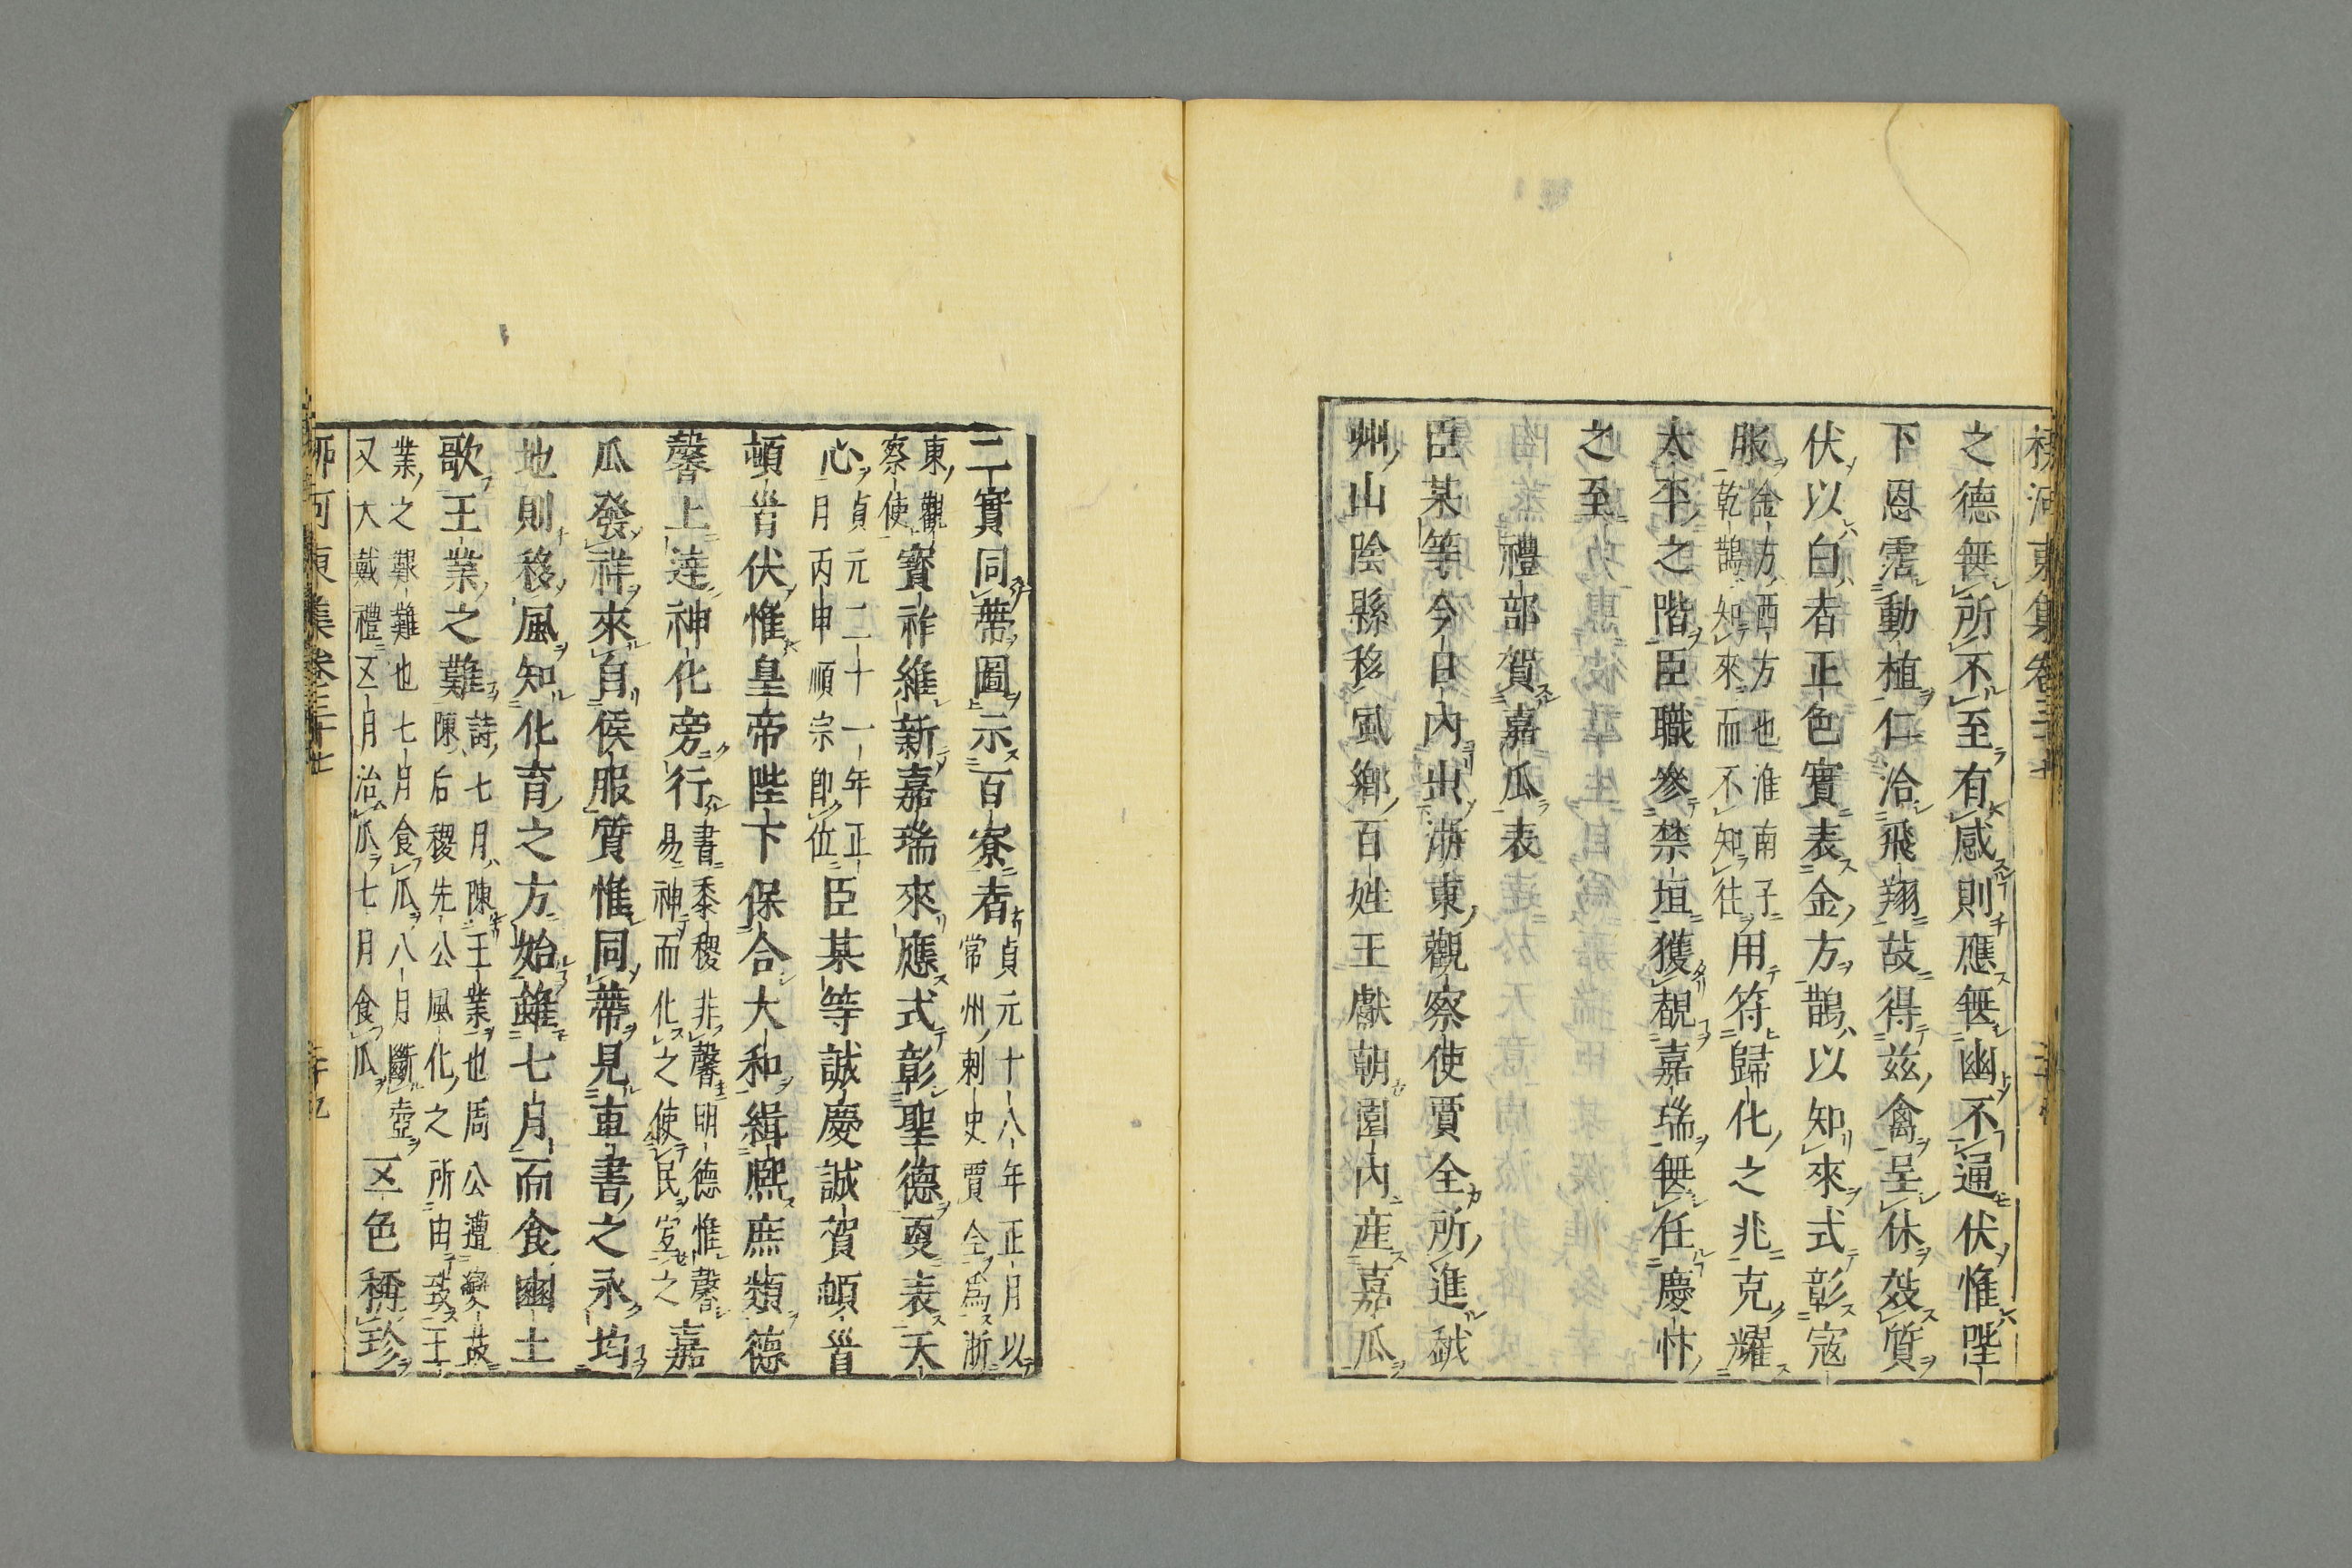 之德無所不至有感則應無幽不通伏惟陛
下恩霑動植仁洽飛翔故得茲禽呈休效質
伏以白者正色實表金方鵲以知來式彰寇
服金方酉方也淮南子
乾鵲知來而不知往用符歸化之兆克耀
太平之階臣職參禁垣獲覩嘉瑞無任慶忭
之至
禮部賀嘉瓜表
臣某等今日內出浙東觀察使賈全所進越
州山陰縣移風鄉百姓王獻朝園內産嘉瓜
二實同蔕圖示百寮者貞元十八年正月以
常州刺史賈全爲浙
東觀
察使寶祚維新嘉瑞來應式彰聖德爰表天
心貞元二十一年正
月丙申順宗卽位臣某等誠慶誠賀頓首
頓首伏惟皇帝陛下保合大和緝熈庶類德
馨上達神化旁行書黍稷非馨明德惟馨
易神而化之使民宜之嘉
瓜發祥來自侯服質惟同蔕見車書之永均
地則移風知化育之方始雖七月而食豳土
歌王業之難詩七月陳王業也周公遭變故
陳后稷先公風化之所由致王
業之艱難也七月食瓜八月斷壺
又大戴禮五月治瓜七月食瓜五色稱珍
柳河東集卷三十七